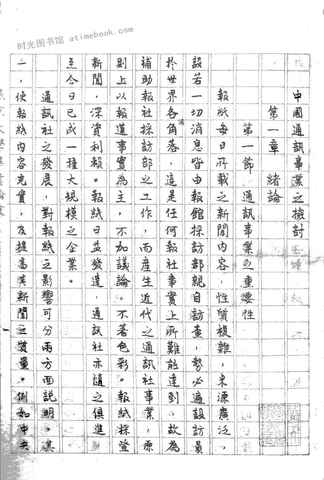 时光图书馆 atimebook.com
中國通訊事業之檢討
第一章 緒論
第一節 通訊事業之重要性
報紙每日所載之新聞內容,性質複雜,來源廣泛,
設若一切消息皆由報館採訪部親自訪查,勢必遍設訪員
於世界各角落,這是任何報社事實上所難能達到,故為
補助報社採訪部之工作,而產生近代之通訊社事業,原
則上以報道事實為主,不加議論。不著色彩。報紙採登
新聞,深資利賴。報紙日益發達,通訊社亦隨之俱進,
至今日已成一種大規模之企業。
通訊社之發展,對報紙之影響可分兩方面說明。其
一,使報紙內容充實,及提高其新聞之質量。例如中央